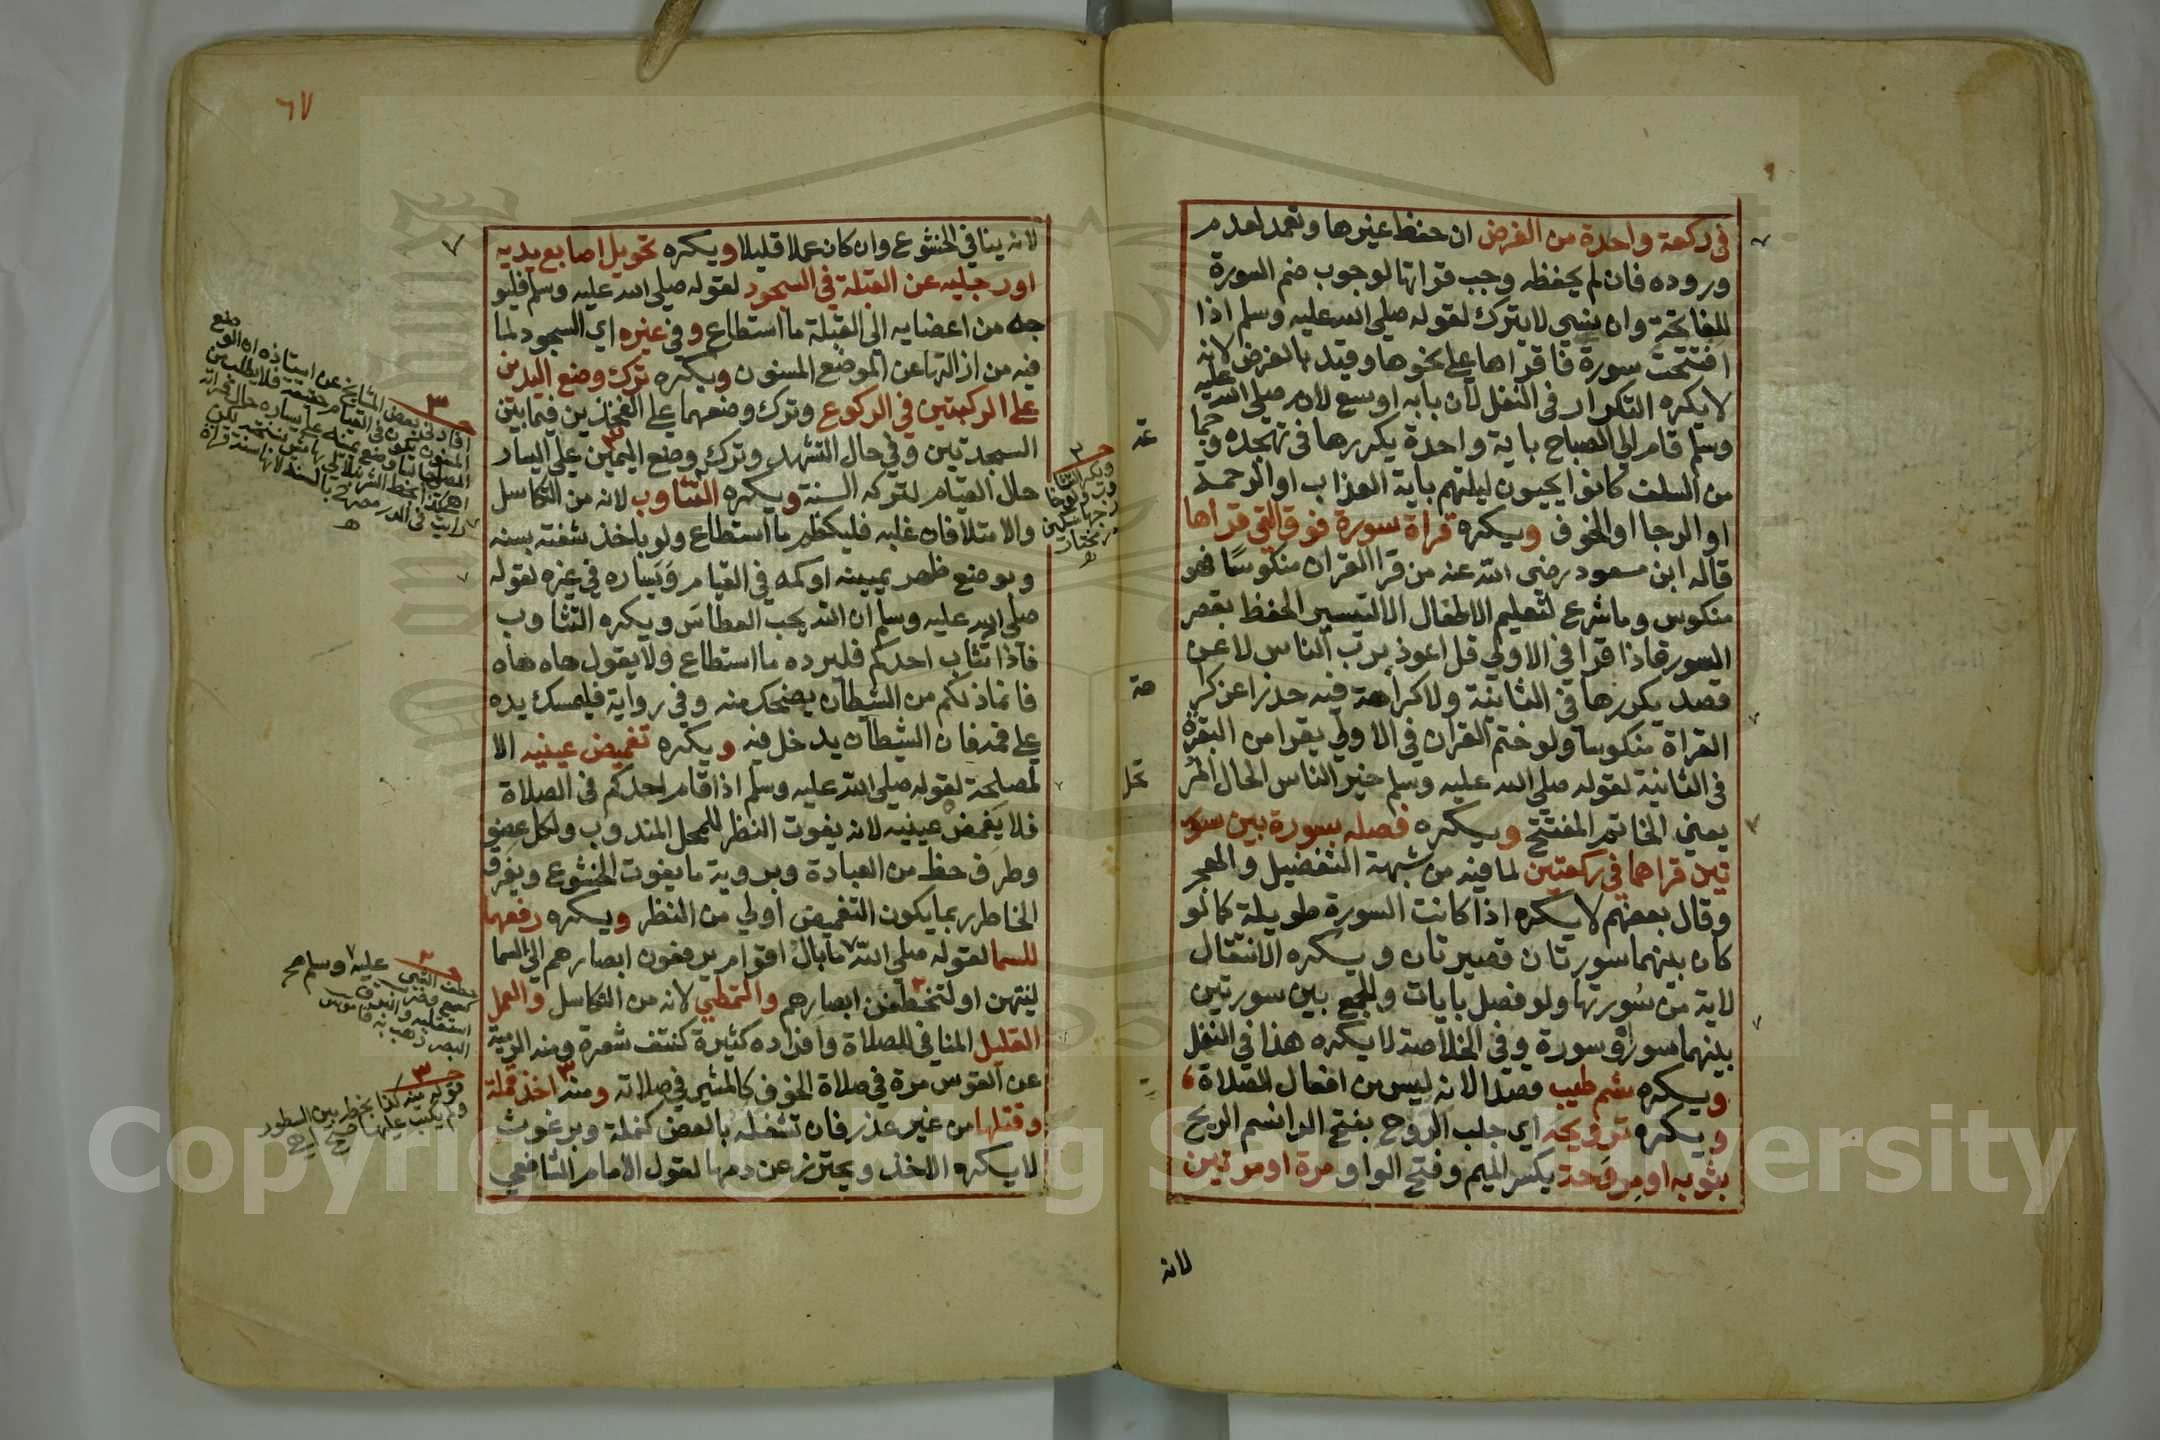 في ركعة واحدة من الفرض ان حفظ غيرها وتعمد لعدم
وروده فان لم يحفظه وجب قراتها لوجوب ضم السورة
للفاتحة وان نسي لا يترك لقوله صلي الله عليه وسلم اذا
افتتحت سورة فاقراها علي نحوها وقيد بالفرض لانه
لا يكره التكرار في النفل لان بابه اوسع لانه صلي الله عليه
وسلم قام الي الصباح باية واحدة يكررها في تهجده وجما
عة
من السلف كانوا يحيون ليلتهم باية العذاب او الرحمة
او الرجا او الخوف ويكره قراة سورة فوق التي قراها
قال ابن مسعود رضي الله عنه من قرا القران منكوسا فهو
منكوس وما شرع لتعليم الاطفال الا لتيسير الحفظ بقصر
السور فاذا قرا في الاولي قل اعوذ برب الناس لا عن
قصد يكررها في الثانية ولا كراهة فيه حذرا عن كرا
هة
القراة منكوسا ولو ختم القران في الاولي يقرا من البقرة
في الثانية لقوله صلي الله عليه وسلم خير الناس الحال المر
تحل
يعني الخاتم المفتتح ويكره فصله بسورة بين سور
تين قراهما في ركعتين لما فيه من شبهة التفضيل والهجر
وقال بعضهم لا يكره اذا كانت السورة طويلة كما لو
كان بينهما سورتان قصيرتان ويكره الانتقال
لاية من سورتها ولو فصل بايات والجمع بين سورتين
بينهما سور او سورة وفي الخلاصة لا يكره هذا في النفل
ويكره شم طيب قصدا لانه ليس من افعال الصلاة
ويكره ترويحه اي جلب الروح بفتح الرا نسم الريح
بثوبه او مروحة بكسر الميم وفتح الواو مرة او مرتين
لانه
٦٧
لانه ينافي الخشوع وان كان عملا قليلا ويكره تحويل اصابع يديه
او رجليه عن القبلة في السجود لقوله صلي الله عليه وسلم فليو
جه من اعضايه الي القبلة ما استطاع وفي غيره اي السجود لما
فيه من ازالتها عن الموضع المسنون ويكره ترك وضع اليدين
علي الركبتين في الركوع وترك وضعهما علي الفخذين فيما بين
السجدتين وفي حال التشهد وترك وضع اليمين علي اليسار
حال القيام لتركه السنة ويكره التثاوب لانه من التكاسل
والامتلا فان غلبه فليكظم ما استطاع ولو باخذ شفته بسنه
وبوضع ظهر يمينه او كمه في القيام ويساره في غيره لقوله
صلي الله عليه وسلم ان الله يحب العطاس ويكره التثاوب
فاذا تثاب احدكم فليرده ما استطاع ولا يقول هاه هاه
فانما ذلكم من الشيطان يضحك منه وفي رواية فليمسك يده
علي فمه فان الشيطان يدخل فيه ويكره تغميض عينيه الا
لمصلحة لقوله صلي الله عليه وسلم اذا قام احدكم في الصلاة
فلا يغمض عينيه لانه يفوت النظر للمحل المندوب ولكل عضو
وطرف حظ من العبادة وبروية ما يفوت الخشوع ويفرق
الخاطر ربما يكون التغميض اولي من النظر ويكره رفعها
للسما لقوله صلي الله ما بال اقوام يرفعون ابصارهم الي السما
لينتهن او لتخطفن ابصارهم والتمطي لانه من التكاسل والعمل
القليل المنافي للصلاة وافراده كثيرة كنتف شعرة ومنه الرمية
عن القوس مرة في صلاة الخوف كالمشي في صلاته ومنه اخذ قملة
وقتلها من غير عذر فان تشغله بالعض كنملة وبرغوث
لا يكره الاخذ ويحترز عن دمها لقول الامام الشافعي
عليه وسلم صح
قوله منه كذا بخطه بين السطور
ولم يكتب عليها صح
Copyright © King Saud University